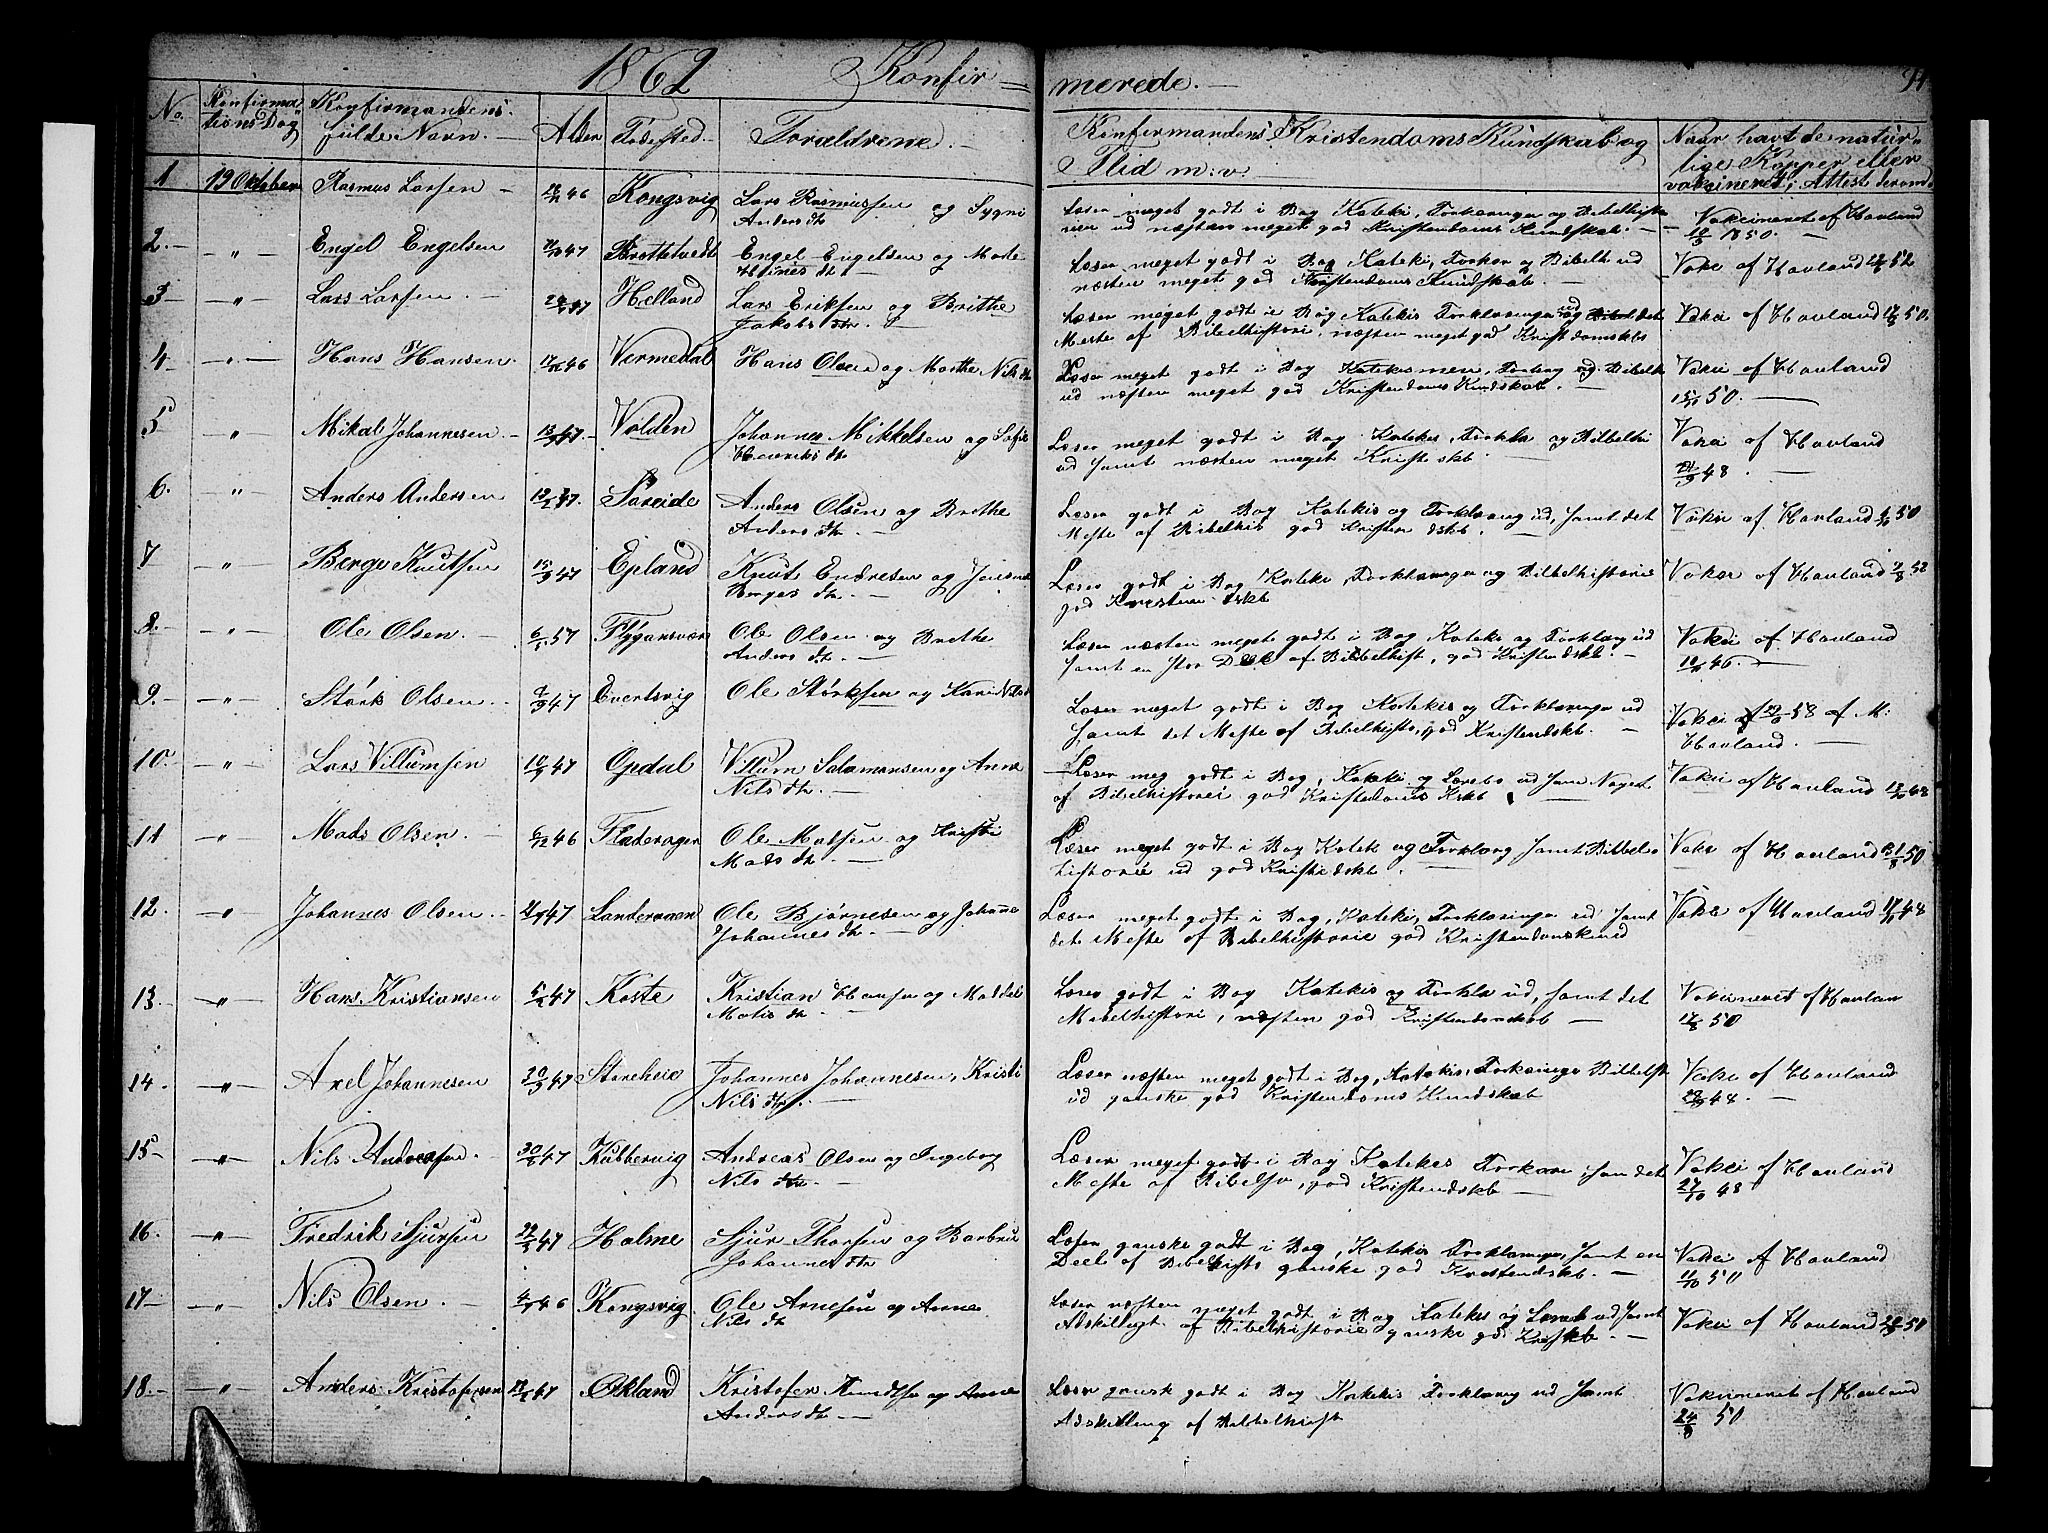 1862 Konfirmerede. 94
No. Konfirmationsdag Konfirmandens fulde Navn. Alder Fødested. Forældrene. Konfirmandens Kristendoms Kundskab og Flid m: v. Naar havt de naturlige Kopper eller vakcineret, Attest derom
1 19 Oktober Rasmus Larsen 46 Kongsvig Lars Rasmussen og Sygni Anders dtr
Læser meget godt i Bog Kateki, Forklaringen og Bibelhisto ud næsten meget god Kristendoms Kundskab. Vakcineret af Havland 1850.
2. " Engel Engelsen 47 Brottetvedt Engel Engelsen og Marte dtr
Læser meget godt i Bog Kateki, Forklar og Bibelh ud næsten meget god Kristendoms Kundskab. Vakc af Havland 52
3 " Lars Larsen 47 Helland Lars Eriksen og Brithe Jakobs dtr.
Læser meget godt i Bog Katekis Forklaringen ud og det Meste af Bibelhistorie, næsten meget god Vakc af Havland 50
4 " Hans Hansen 46 Vermedal Hans Olsen og Marthe Nils dtr
Læser meget godt i Bog ud næsten meget god Kristendoms Kundskab. Vakc af Havland 50.
5 " Mikal Johannesen 47 Volden Johannes Mikkelsen og Sofie Henriks dtr
Læser meget godt i Bog Katekis, Forkla og Bibelhi ud samt næsten meget Vakci af Havland 48
6. " Anders Andersen 47. Søreide Anders Olsen og Brethe Anders dtr.
Læser godt i Bog Katekis og Forklaring ud, samt det Meste af Bibelhis god Vakci af Havland 50
7 " Berge Knutsen 47 Epland Knut Endresen og dtr.
Læser godt i Bog Kateki, Forklaringen og Bibelhistorie god Vakci af Havland 52
8. " Ole Olsen 57 Ole Olsen og Brethe Anders dtr
Læser næsten meget godt i Bog Katekis og Forklarg ud samt en Stor Deel af Bibelhist, god Kristendskb. Vakci af Havland 46.
9. " Størk Olsen 47 Evertsvig Ole Størksen og Kari Nilsd
Læser meget godt i Bog Katekis og Forklaringen ud samt det Meste af Bibelhisto, god Kristendskb. Vakci 58 af M: Havland.
10 " Lars Villumsen 47 Opdal Villum Salamonsen og Anna Nils dtr.
Læser meg godt i Bog, Kateki og Lærebo ud sam Noget af Bibelhistorie god Kristendoms Kskb Vakci af Havland 48
11 " Mads Olsen 46 Fladerager Ole Matsen og Kristi Mads dtr
Læser meget godt i Bog Katek og Forklarg samt Bibbelhistorie ud god Kristidskb. Vakc af Havland 50
12. " Johannes Olsen 47 Sandervaan Ole Bjørnesen og Johanne Johannes dtr.
Læser meget godt i Bog, Kateki, Forklaringen ud samt det Meste af Bibelhistorie god Vakc af Havland 48
13 " Hans Kristiansen 47 Koste Kristian og dtr
Læser godt i Bog Katekis og Forkla ud, samt det Bibelhistori, næsten god Vakcineret af Havlan 50
14 " Axel Johannesen 47 Storeheie Johannes Johannesen, Kristi Nils dtr
Læser næsten meget godt i Bog, Katekis, ud ganske god Kristendoms Kundskab Vakc af Havland 48.
15 " Nils Andreasen 47 Kubbervig Andreas Olsen og Ingebog Nils dtr
Læser meget godt i Bog Katekes sam det Meste af god Kristendskb Vakci af Havland 27/10 48
16. " Fredrik Sjursen 47 Holme Sjur Thorsen og Barbru Johannes dtr
Læser ganske godt i Bog, Katekis Forklaringen, samt en Deel af Bibelhisto ganske god Kristendskb. Vakci af Havland 50
17 " Nils Olsen 46 Kongsvig Ole Arnesen og Anne Nils dtr
Læser næsten meget godt i Bog Katekis og ud samt Adskilligt af Bibelhistorie ganske god Vakci af Havland 50
18. " Anders Kristofersen 47 Økland Kristofer Knudtsen og Anne Anders dtr
Læser gansk godt i Bog Katekis Forklaring ud samt Adskilling af Bibbelhist Vakcineret af Havland 24/8 50